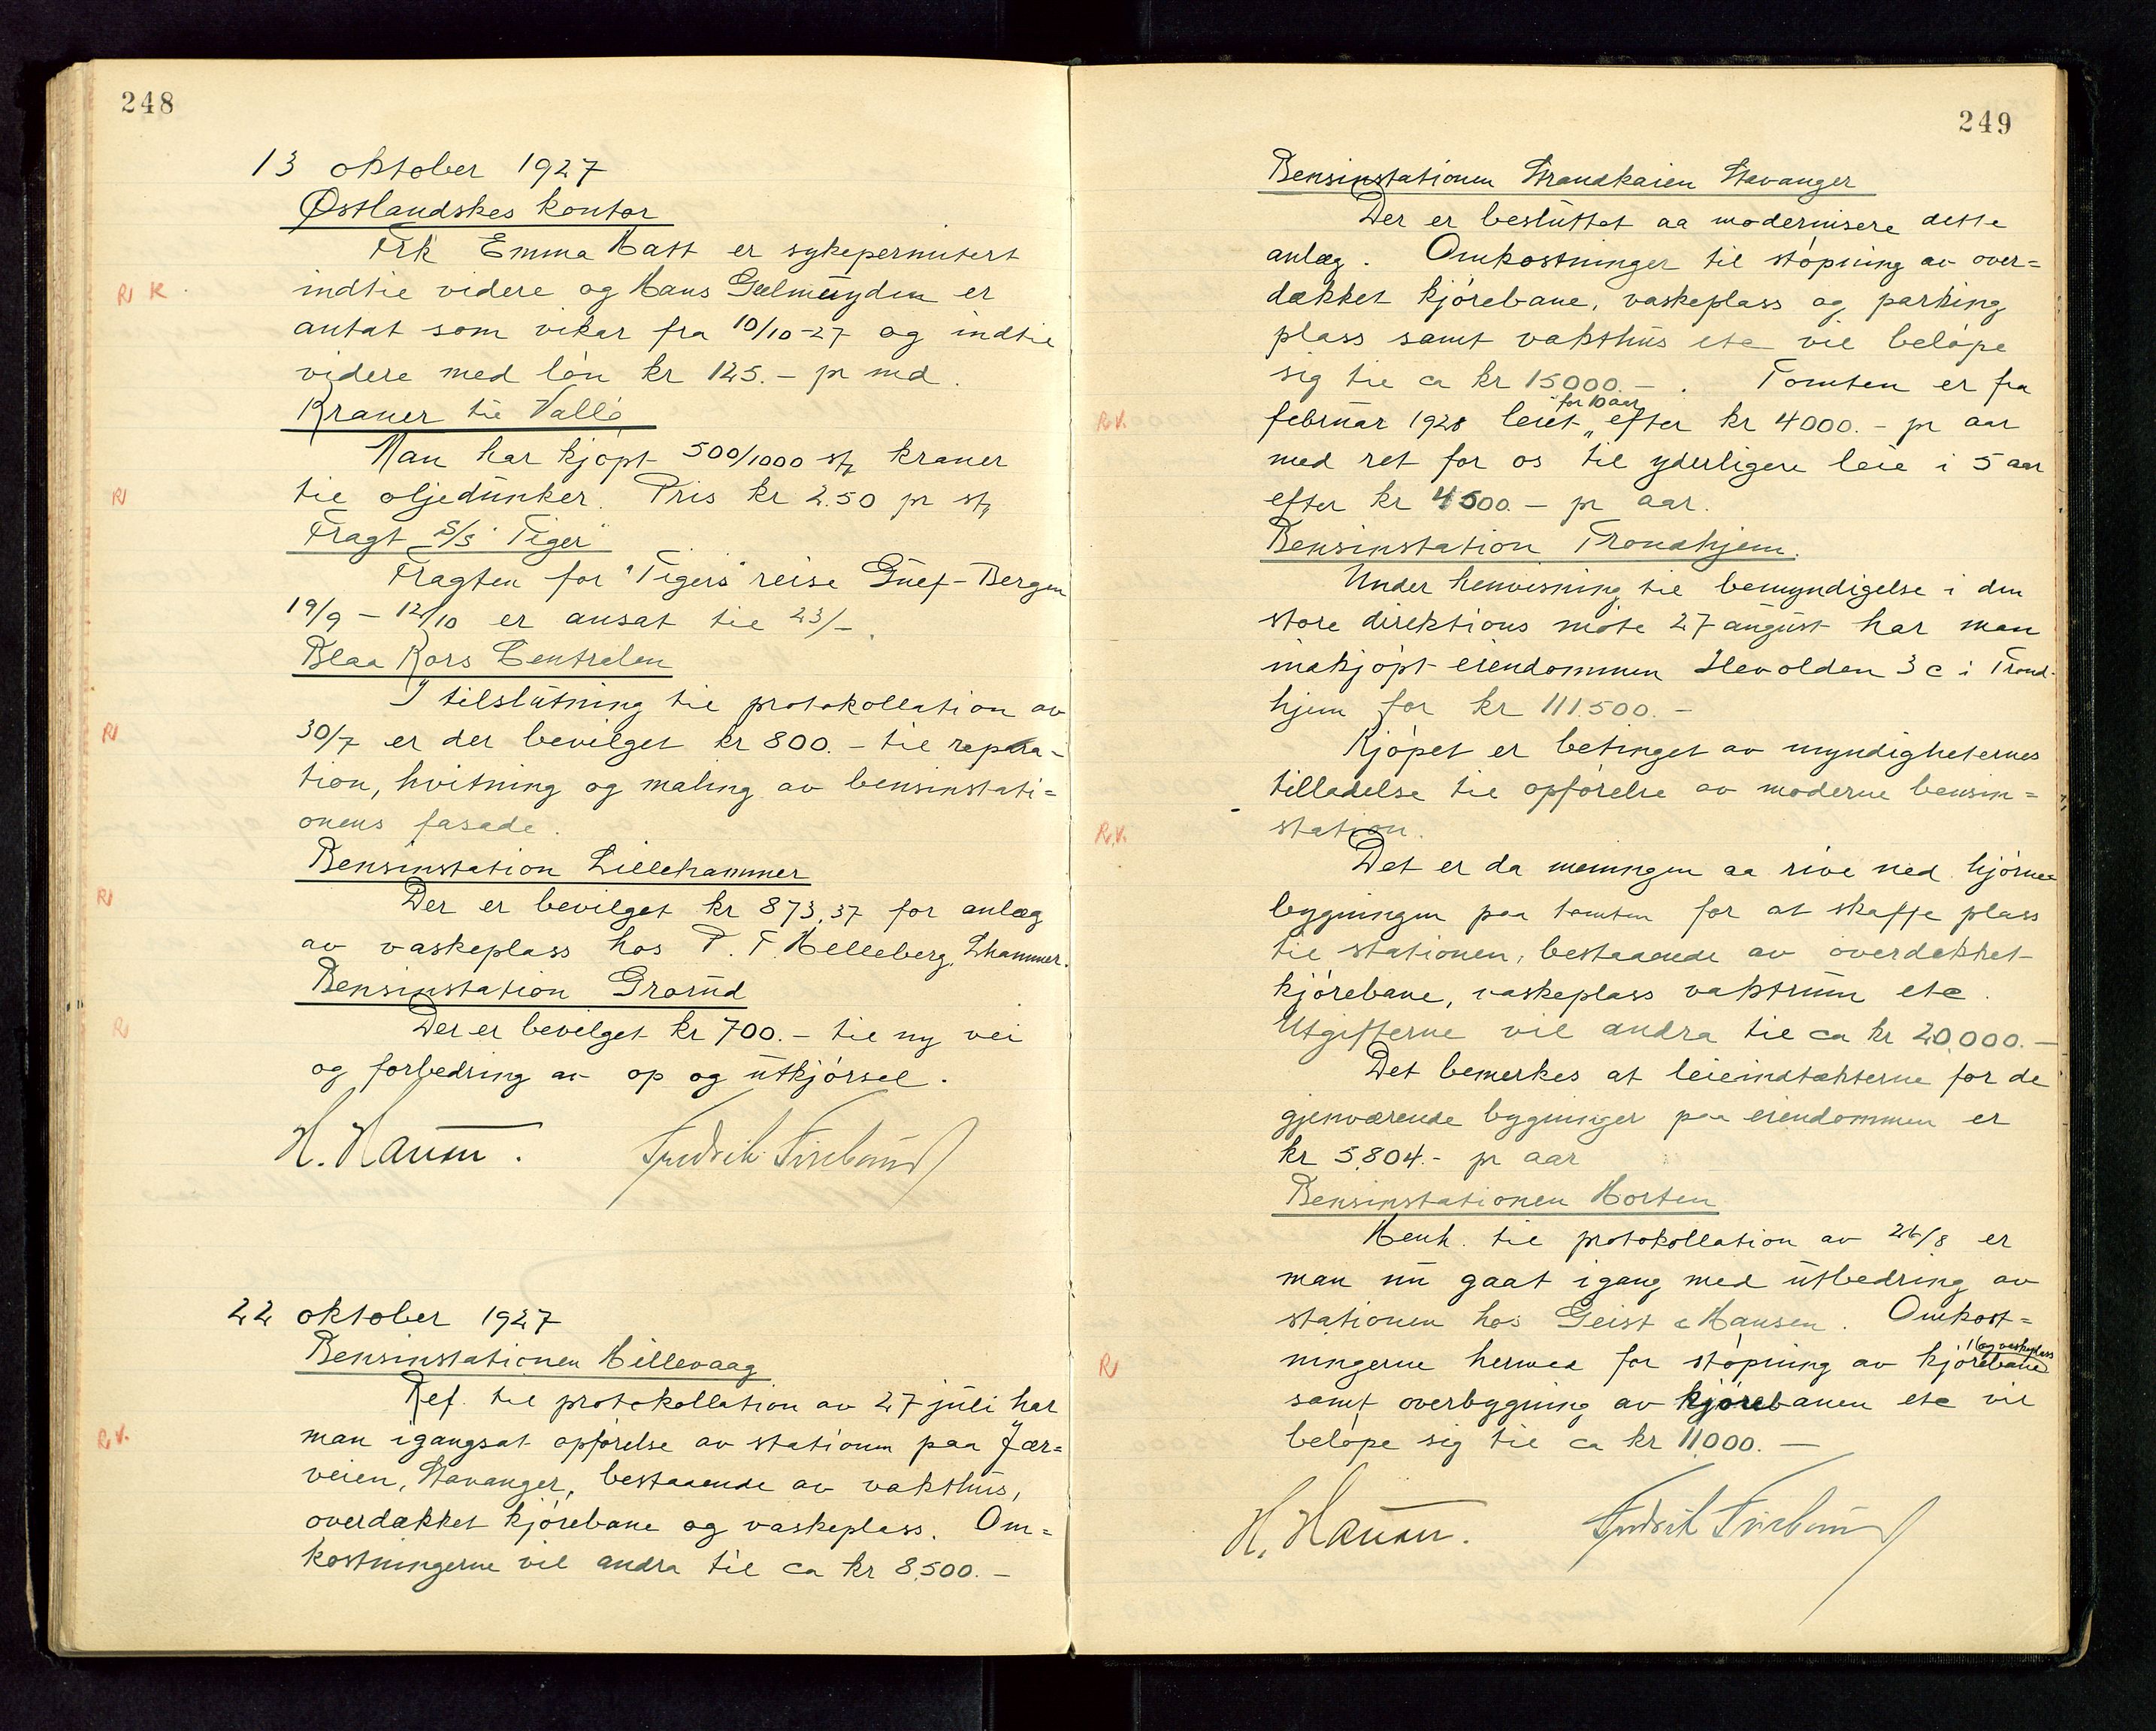 248
13 oktober 1927
Østlandskes kontor
Frk Emma Hatt er sykepermitert
indtil videre og Hans Gulmeyden er
antat som vikar fra 10/10-27 og indtil
videre med løn kr 125.- pr md.
Kraner til Vallø
Man har kjøpt 500/1000 stk kraner
til oljedunker. Pris kr 2.50 pr stk
Fragt S/S "Tiger"
Fragten for "Tigers" reise Gulf-Bergen
19/9 - 12/10 er ansat til 23/-.
Blaa Kors Centralen
I tilslutning til protokollation av
30/7 er der bevilget kr 800.- til repara-
tion, hvitning og maling av bensinstati=
onens fasade.
Bensinstation Lillehammer
Der er bevilget kr 873,37 for anlæg
av vaskeplass hos P. T. Helleberg, Lhammer.
Bensinstation Grorud
Der er bevilget kr 700.- til ny vei
og forbedring av op og utkjørsel.
H. Hansen. Fredrik Fineborud
22 oktober 1927
Bensinstationen Hillevaag
Ref. til protokollation av 27 juli har
man igangsat opførelse av stationen paa Jær=
veien, Stavanger, bestaaende av vakthus,
overdækket kjørebane og vaskeplass. Om=
kostningerne vil andra til ca kr 8.500.-
249
Bensinstationen Strandkaien Stavanger
Der er besluttet aa modernisere dette
anlæg. Omkostninger til støpning av over=
dækket kjørebane, vaskeplass og parking
plass samt vakthus etc vil beløpe
sig til ca kr 15000.-. Tomten er fra
februar 1928 leiet "for 10 aar" efter kr 4000.- pr aar
med ret for os til yderligere leie i 5 aar
efter kr 4500.- pr aar.
Bensinstation Trondhjem.
Under henvisning til bemyndigelse i den
store direktions møte 27 august har man
inkjøpt eiendommen Ilevolden 3 c i Trond-
hjem for kr 111.500.-
Kjøpet er betinget av myndigheternes
tilladelse til opførelse av moderne bensin=
station.
Det er da meningen aa rive ned hjørne=
bygningen paa tomten for at skaffe plass
til stationen, bestaaende av overdækket
kjørebane, vaskeplass vaktrum etc.
Utgifterne vil andra til ca kr 20.000.-
Det bemerkes at leieindtækterne for de
gjenværende bygninger paa eiendommen er
kr 5.804.- pr aar
Bensinstationen Horten
Henh. til protokollation av 26/8 er
man nu gaat igang med utbedring av
stationen hos Geist & Hansen. Omkost=
ningerne hermed for støpning av kjørebane og vaskeplass
samt overbygning av kjørebanen etc vil
beløpe sig til ca kr 11.000.-
H. Hansen. Fredrik Fineborud